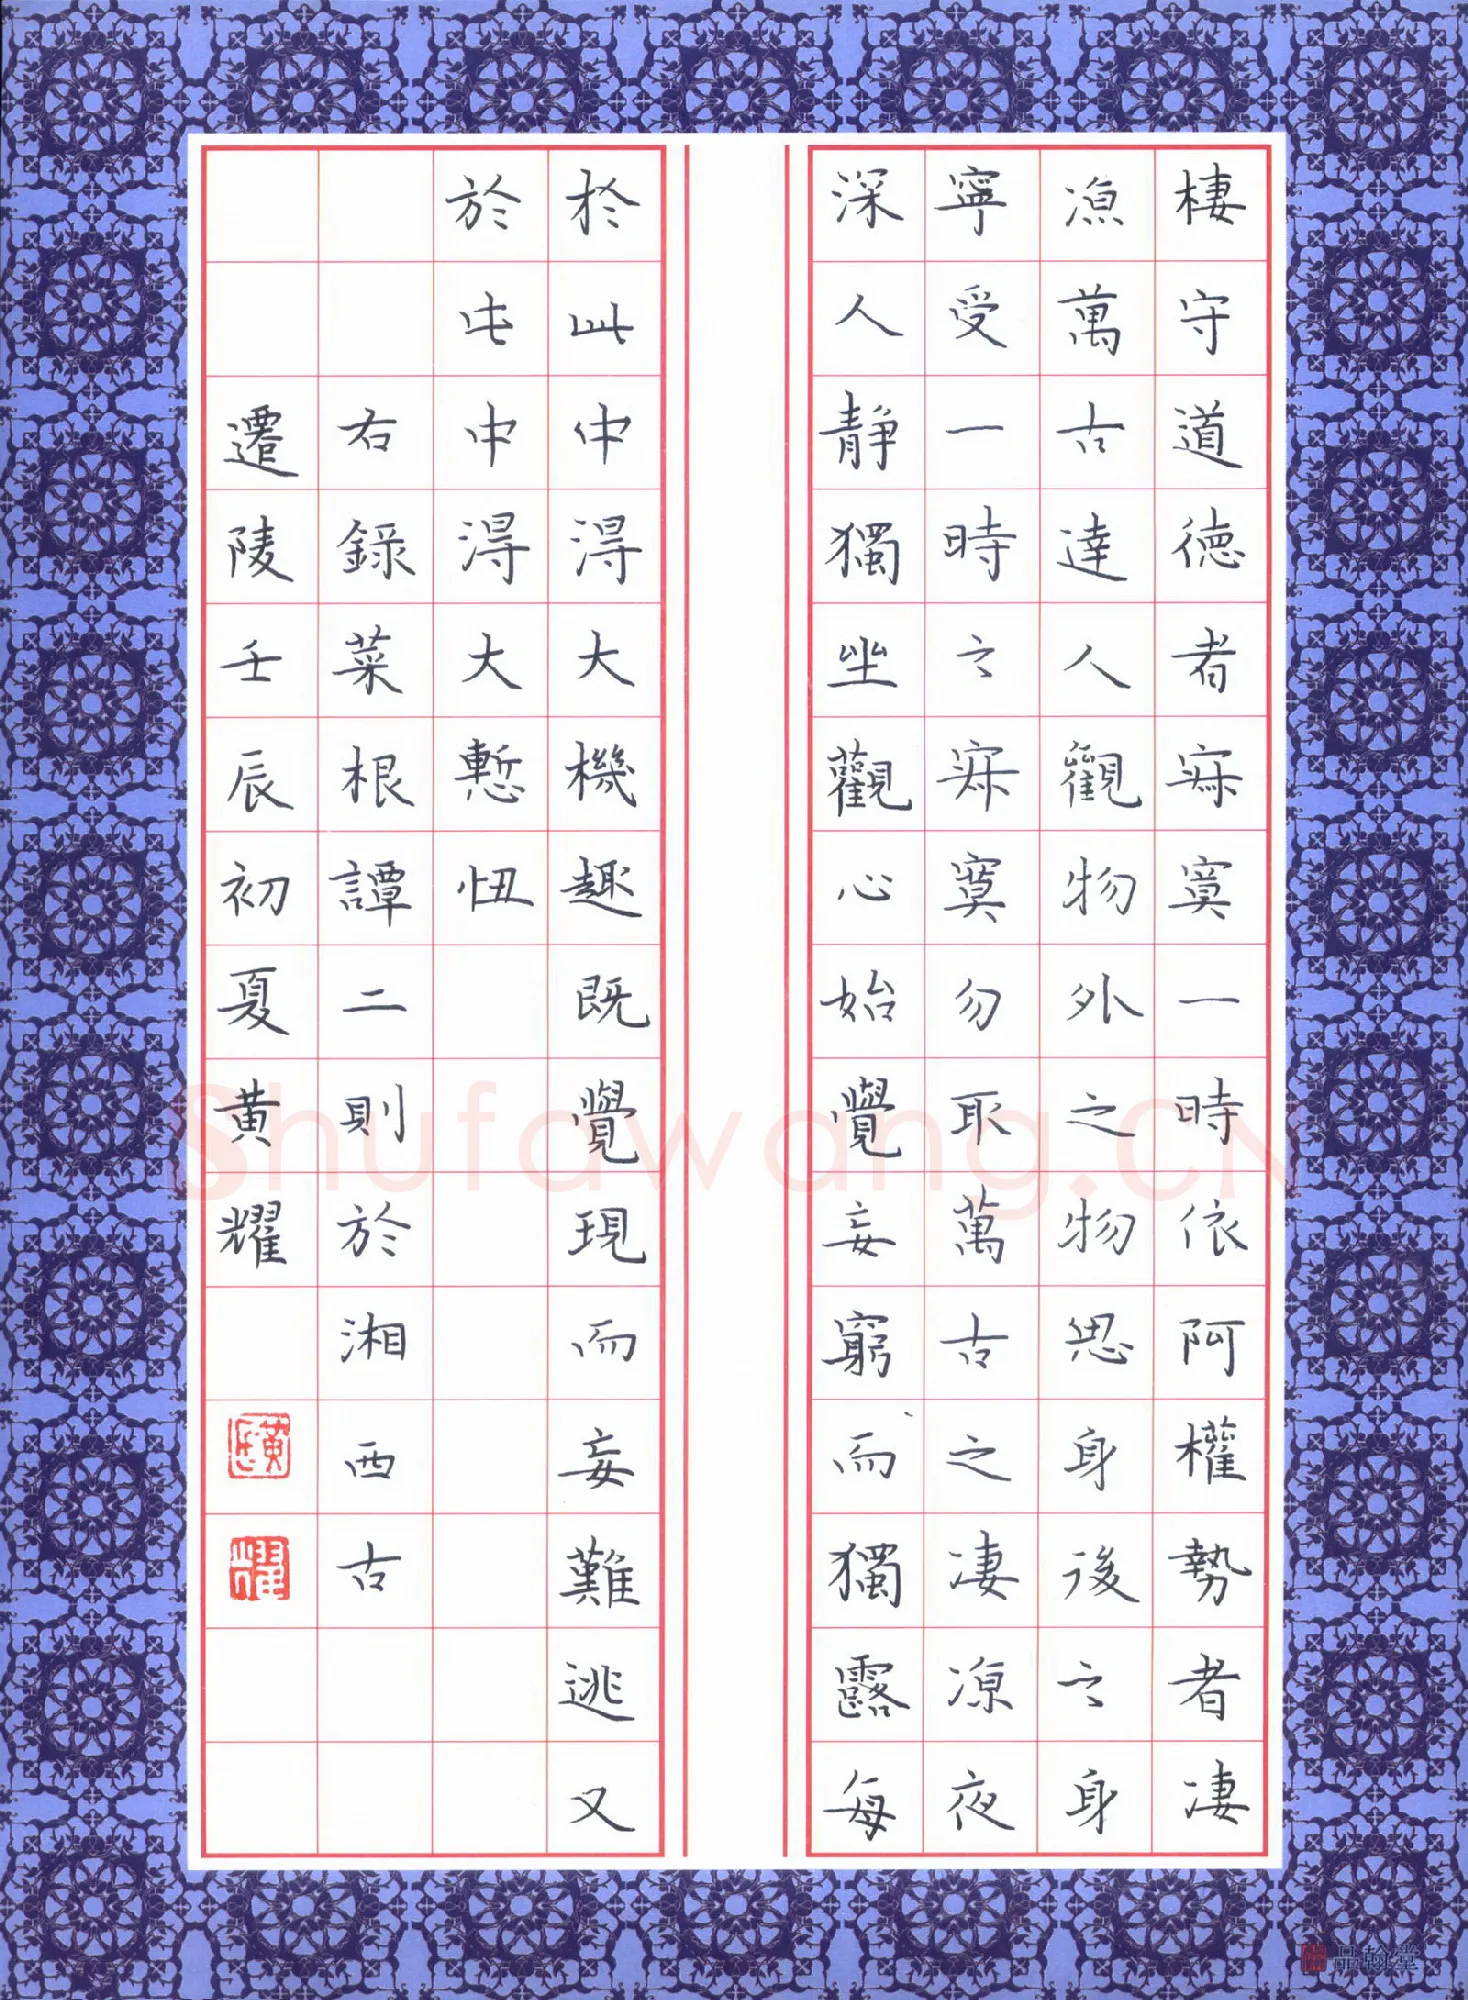 棲守道德者寂寞一時依阿權勢者凄
凉萬古達人觀物外之物思身後之身
寧受一時之寂寞勿取萬古之凄凉夜
深人靜獨坐觀心始覺妄窮而獨露每
於此中得大機趣既覺現而妄難逃又
於此中得大慙忸
右錄菜根譚二則於湘西古
遷陵壬辰初夏黄耀
Shufawang.CN
品翰堂